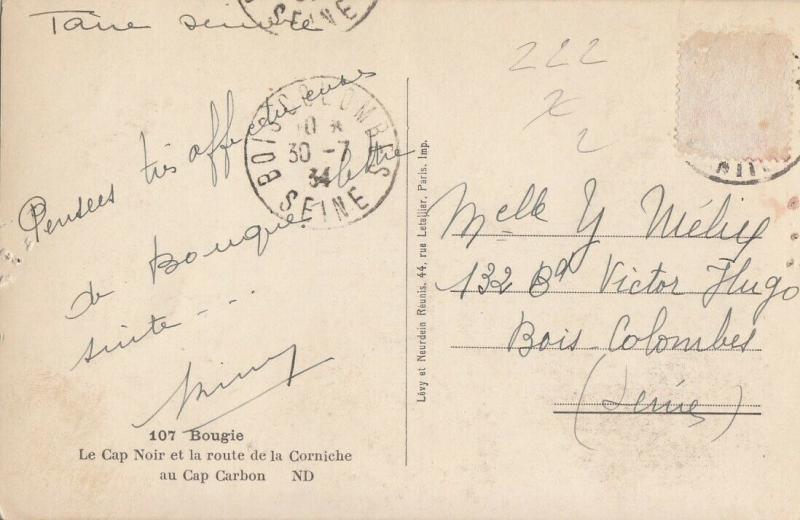 Pensées très affectueuses
de Bougie. lettre
suite - ..
107 Bougie
Le Cap Noir et la route de la Corniche
au Cap Carbon ND
BOIS-COLOMBES
10
30 - 7
34
SEINE
SEINE
Lévy et Neurdein Réunis. 44, rue Letellier, Paris. Imp.
222
x
2
Melle Y Méliex
132 Bd Victor Hugo
Bois-Colombes
(Seine)